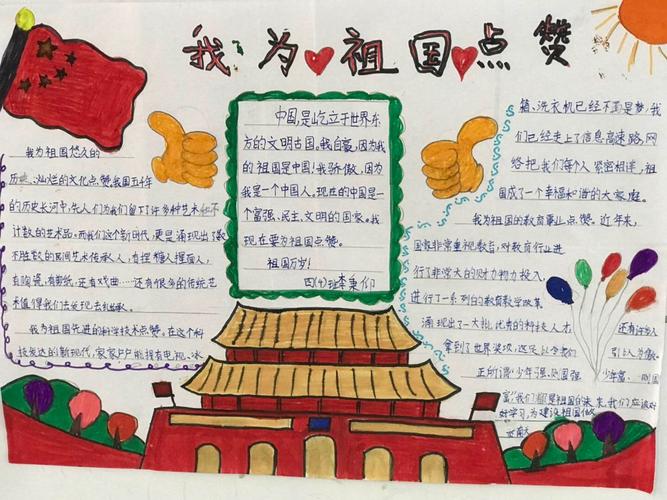 我为祖国点赞
我为祖国悠久的
历史、灿烂的文化点赞。我国五千年
的历史长河中,先人们为我们留下了许多种艺术和不
计数的艺术品。而我们这个新时代,更是涌现出了数
不胜数的民间艺术传承人,有捏糖人捏面人,
有陶瓷,有剪纸,还有戏曲……还有很多的传统艺
术值得我们去发现去传承。
我为祖国先进的科学技术点赞。在这个科
技发达的新现代,家家户户能拥有电视、冰
中国,是屹立于世界东
方的文明古国。我自豪,因为我
的祖国是中国!我骄傲,因为
我是一个中国人。现在的中国是一
个富强、民主、文明的国家。我
现在要为祖国点赞。
祖国万岁!
四(4)班李秉仰
箱、洗衣机已经不再是梦,我
们已经走上了信息高速路,网
络把我们每个人紧密相连,祖
国成了一个幸福和谐的大家庭。
我为祖国的教育事业点赞。近年来,
国家非常重视教育,对教育行业进
行了非常大的财力物力投入,
进行了一系列的教育教学改革
涌现出了一大批优秀的科技人才
还有许多人
拿到了世界奖项,这足以令我们
引以为傲。
正所谓:少年强、则国强
少年富、则国
富!我们都是祖国的未来,我们应该好
好学习,为建设祖国做
贡献